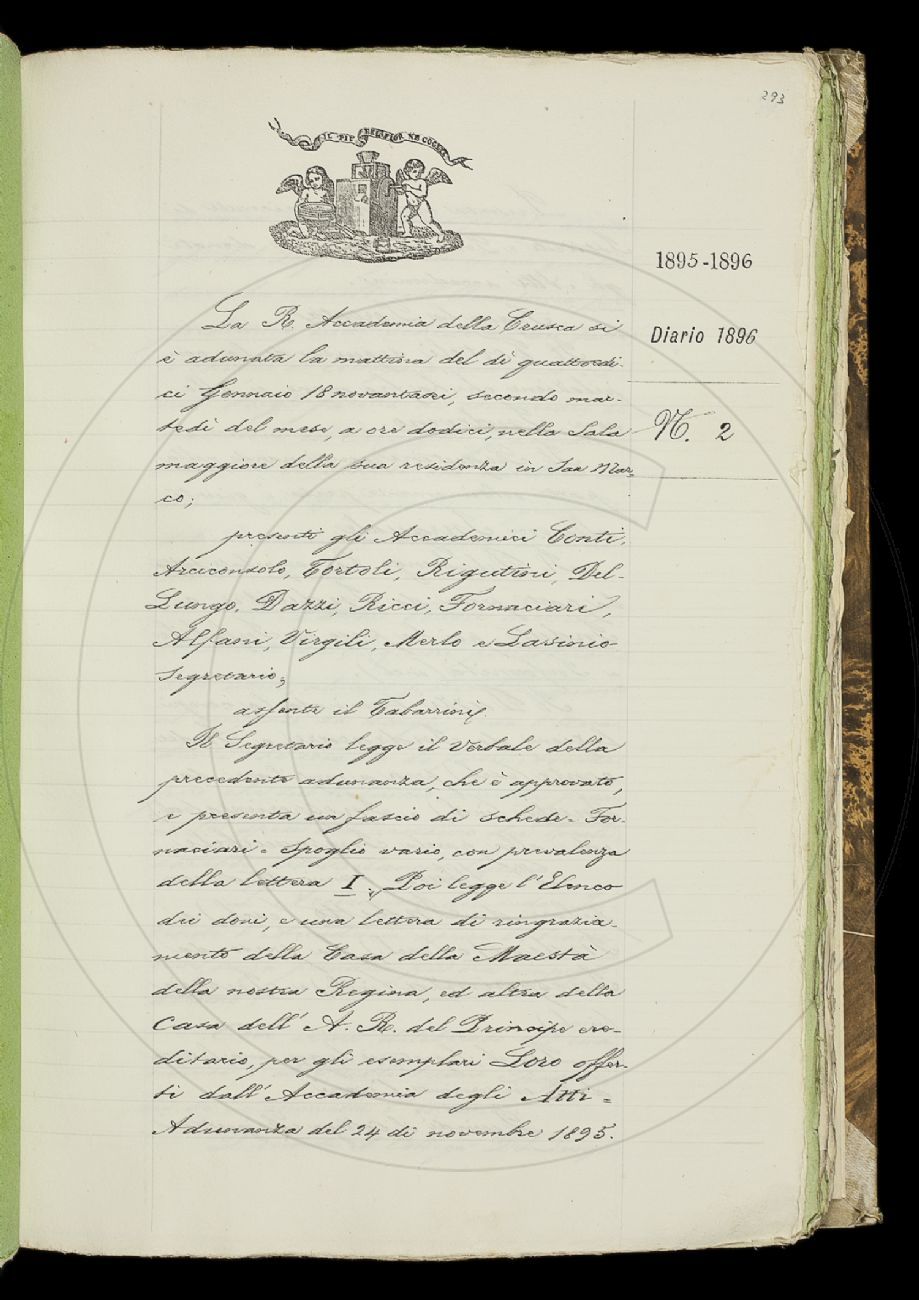 293
IL PIÙ BEL FIOR NE COGLIE
1895-1896
Diario 1896
N. 2
La R. Accademia della Crusca si
è adunata la mattina del dì quattordi-
ci Gennaio 18novantasei, secondo mar-
tedì del mese, a ore dodici, nella Sala
maggiore della sua residenza in San Mar-
co;
presenti gli Accademici Conti,
Arciconsolo, Tortoli, Rigutini, Del-
Lungo, Dazzi, Ricci, Fornaciari,
Alfani, Virgili, Merlo e Lasinio
Segretario;
assente il Tabarrini.
Il Segretario legge il Verbale della
precedente adunanza, che è approvato,
e presenta un fascio di schede - For-
naciari - Spoglio vario, con prevalenza
della lettera I. Poi legge l'Elenco
dei doni, e una lettera di ringrazia-
mento della Casa della Maestà
della nostra Regina, ed altra della
Casa dell'A. R. del Principe ere-
ditario, per gli esemplari Loro offer-
ti dall'Accademia degli Atti =
Adunanza del 24 di novembre 1895.